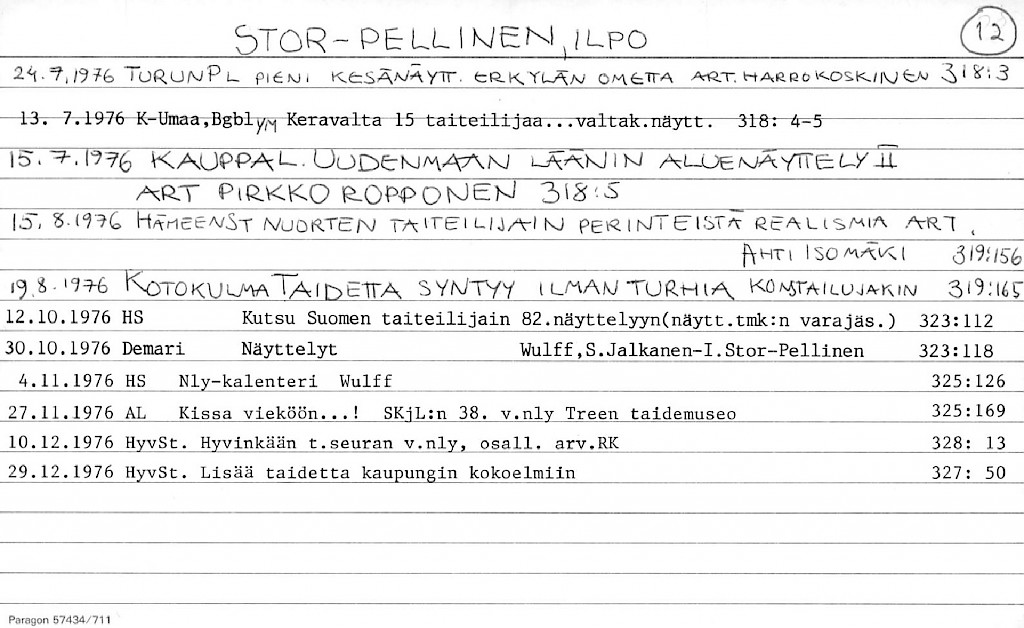 STOR-PELLINEN, ILPO
12
24.7.1976 TURUNPL PIENI KESÄNÄYTT. ERKYLÄN OMETTA ART. HARRO KOSKINEN 318:3
13. 7.1976 K-Umaa,Bgbl YM Keravalta 15 taiteilijaa...valtak.näytt. 318: 4-5
15.7.1976 KAUPPAL. UUDENMAAN LÄÄNIN ALUENÄYTTELY II
ART PIRKKO ROPPONEN 318:5
15.8.1976 HÄMEENST NUORTEN TAITEILIJAIN PERINTEISTÄ REALISMIA ART.
AHTI ISOMÄKI 319:156
19.8.1976 KOTOKULMA TAIDETTA SYNTYY ILMAN TURHIA KONSTAILUJAKIN 319:165
12.10.1976 HS Kutsu Suomen taiteilijain 82.näyttelyyn(näytt.tmk:n varajäs.) 323:112
30.10.1976 Demari Näyttelyt Wulff,S.Jalkanen-I.Stor-Pellinen 323:118
4.11.1976 HS Nly-kalenteri Wulff 325:126
27.11.1976 AL Kissa vieköön...! SKjL:n 38. v.nly Treen taidemuseo 325:169
10.12.1976 HyvSt. Hyvinkään t.seuran v.nly, osall. arv.RK 328: 13
29.12.1976 HyvSt. Lisää taidetta kaupungin kokoelmiin 327: 50
Paragon 57434/711